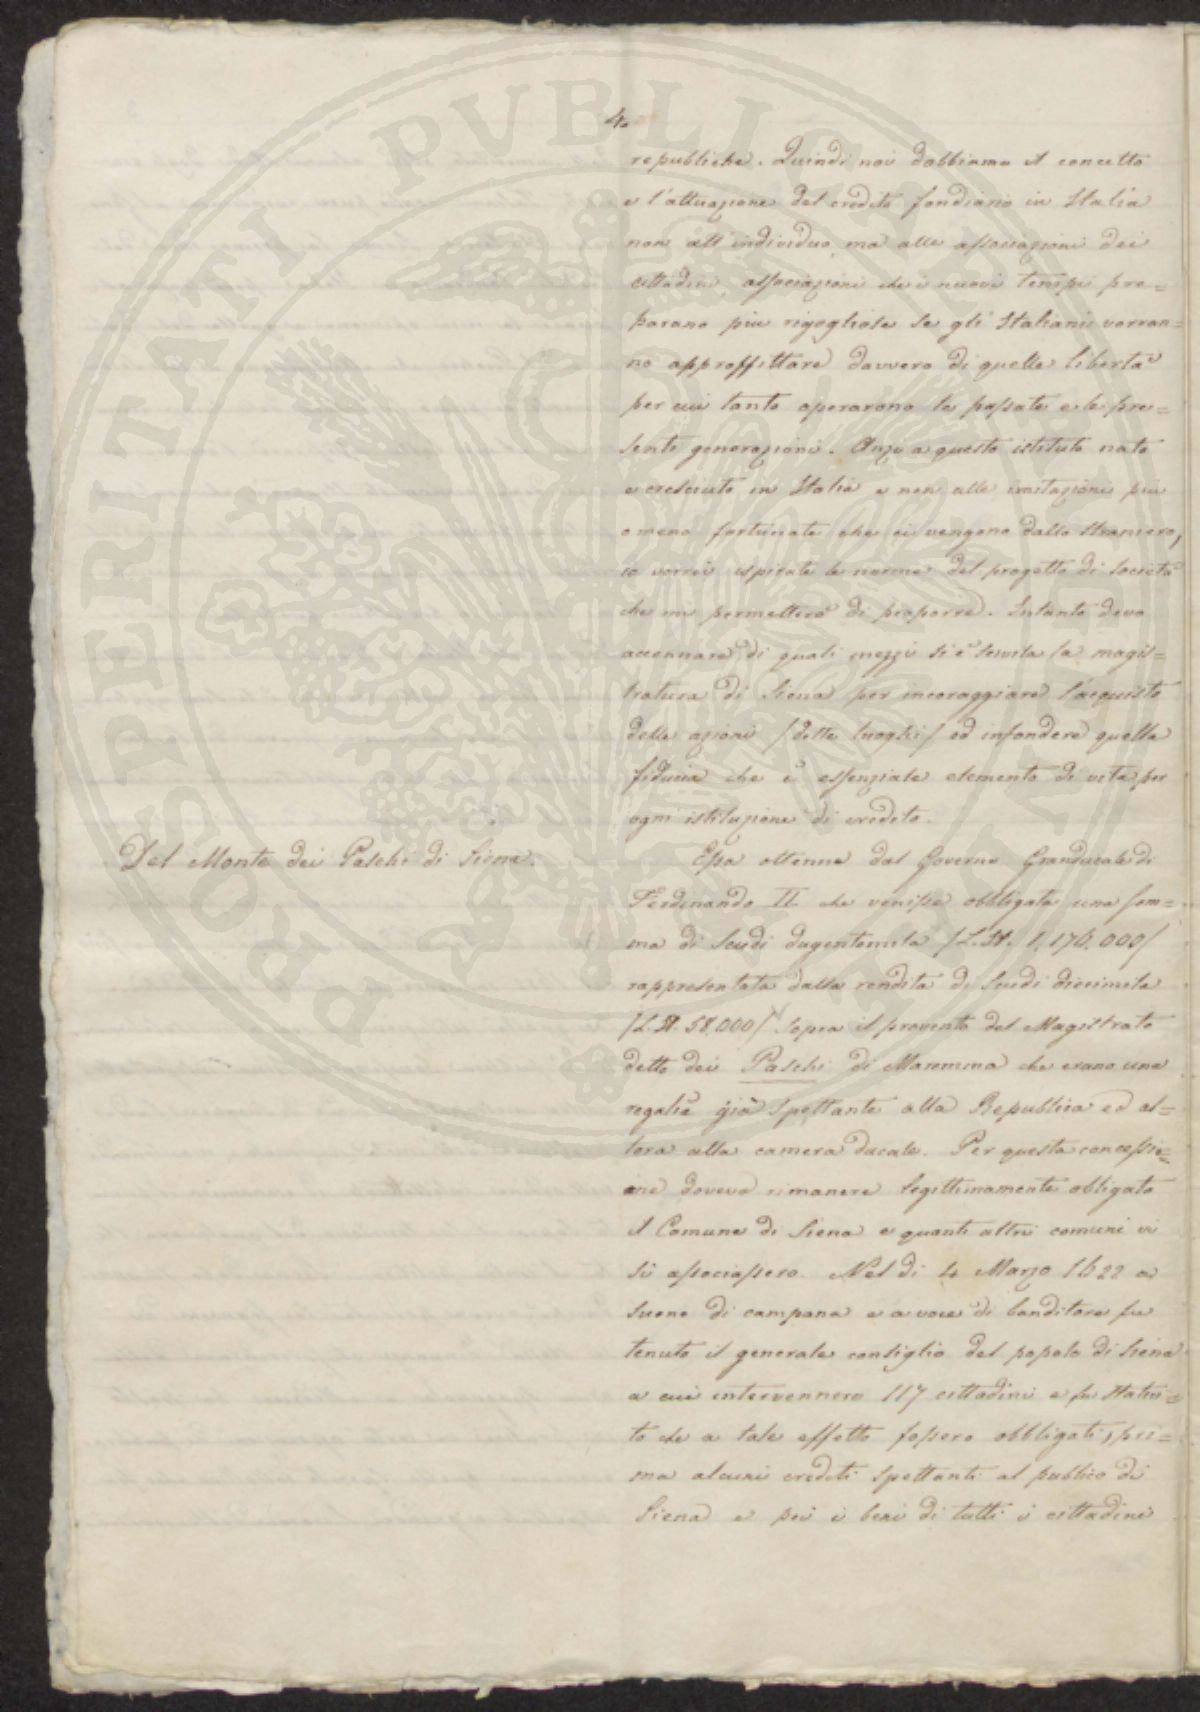 4.
republiche. Quindi noi dobbiamo il concetto
e l'attuazione del credito fondiario in Italia
non all'individuo, ma alle associazioni dei
cittadini associazioni che i nuovi tempi pre=
parano più rigogliose se gli Italiani vorran=
no approffittare davvero di quelle libertà
per cui tanto operarono le passate e le pre=
senti generazioni. Anzi a questo istituto nato
e cresciuto in Italia e non alle imitazioni più
o meno fortunate che ci vengono dallo straniero,
io vorrei ispirate le norme del progetto di società
che mi permetterò di proporre. Intanto devo
accennare di quali mezzi si è servita la magis=
tratura di Siena per incoraggiare l'acquisto
delle azioni /dette luoghi/ ed infondere quella
fiducia che è essenziale elemento di vita per
ogni istituzione di credito.
Del Monte dei Paschi di Siena.
Essa ottenne dal Governo Granducale di
Ferdinando II che venisse obbligata una som=
ma di Scudi dugentomila /L.It. 1,176.000/
rappresentata dalla rendita di Scudi diecimila
/L.It. 58,000/ sopra il provento del Magistrato
detto dei Paschi di Maremma che erano una
regalìa già spettante alla Republica ed al=
lora alla camera ducale. Per questa concessio=
ne doveva rimanere legittimamente obligato
il Comune di Siena e quanti altri comuni vi
si associassero. Nel dì 4 Marzo 1622 a
suono di campana e a voce di banditore fu
tenuto il generale consiglio del popolo di Siena
a cui intervennero 117 cittadini e fu stabili=
to che a tale effetto fossero obbligati, pri=
ma alcuni crediti spettanti al publico di
Siena e poi i beni di tutti i cittadini
PROSPERITATI PUBLICAE